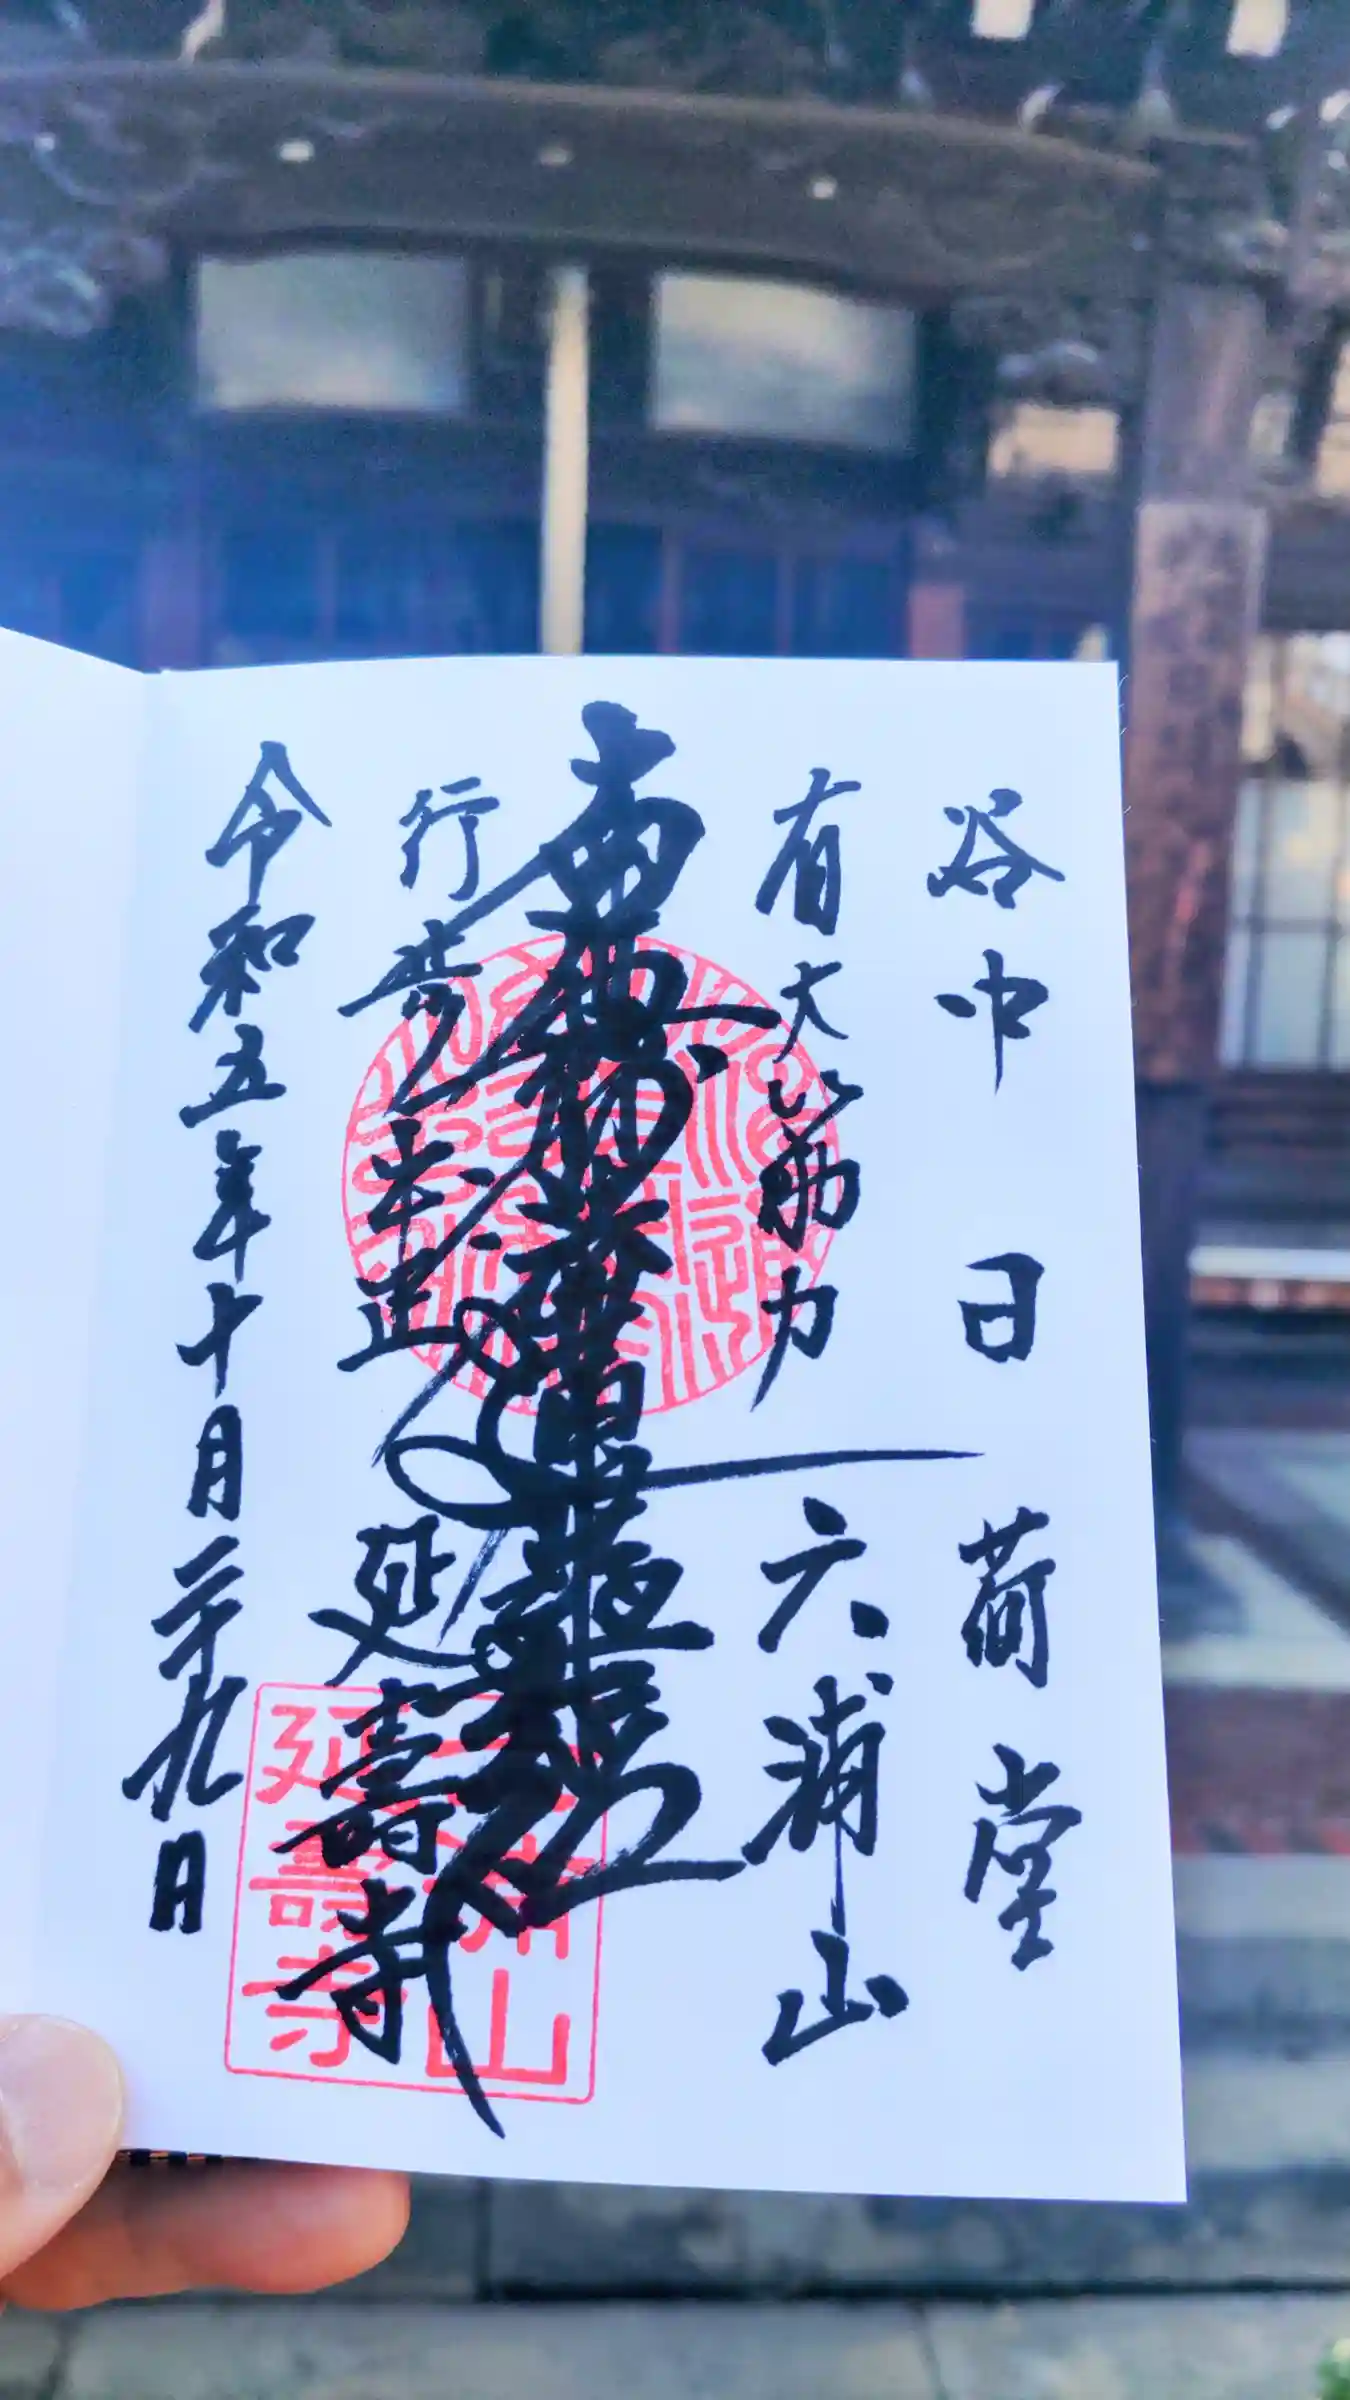 谷中 日荷堂
有大筋力 六浦山
南無妙法蓮華經
行歩平正 延壽寺
令和五年十月二十九日
六浦山
延壽寺